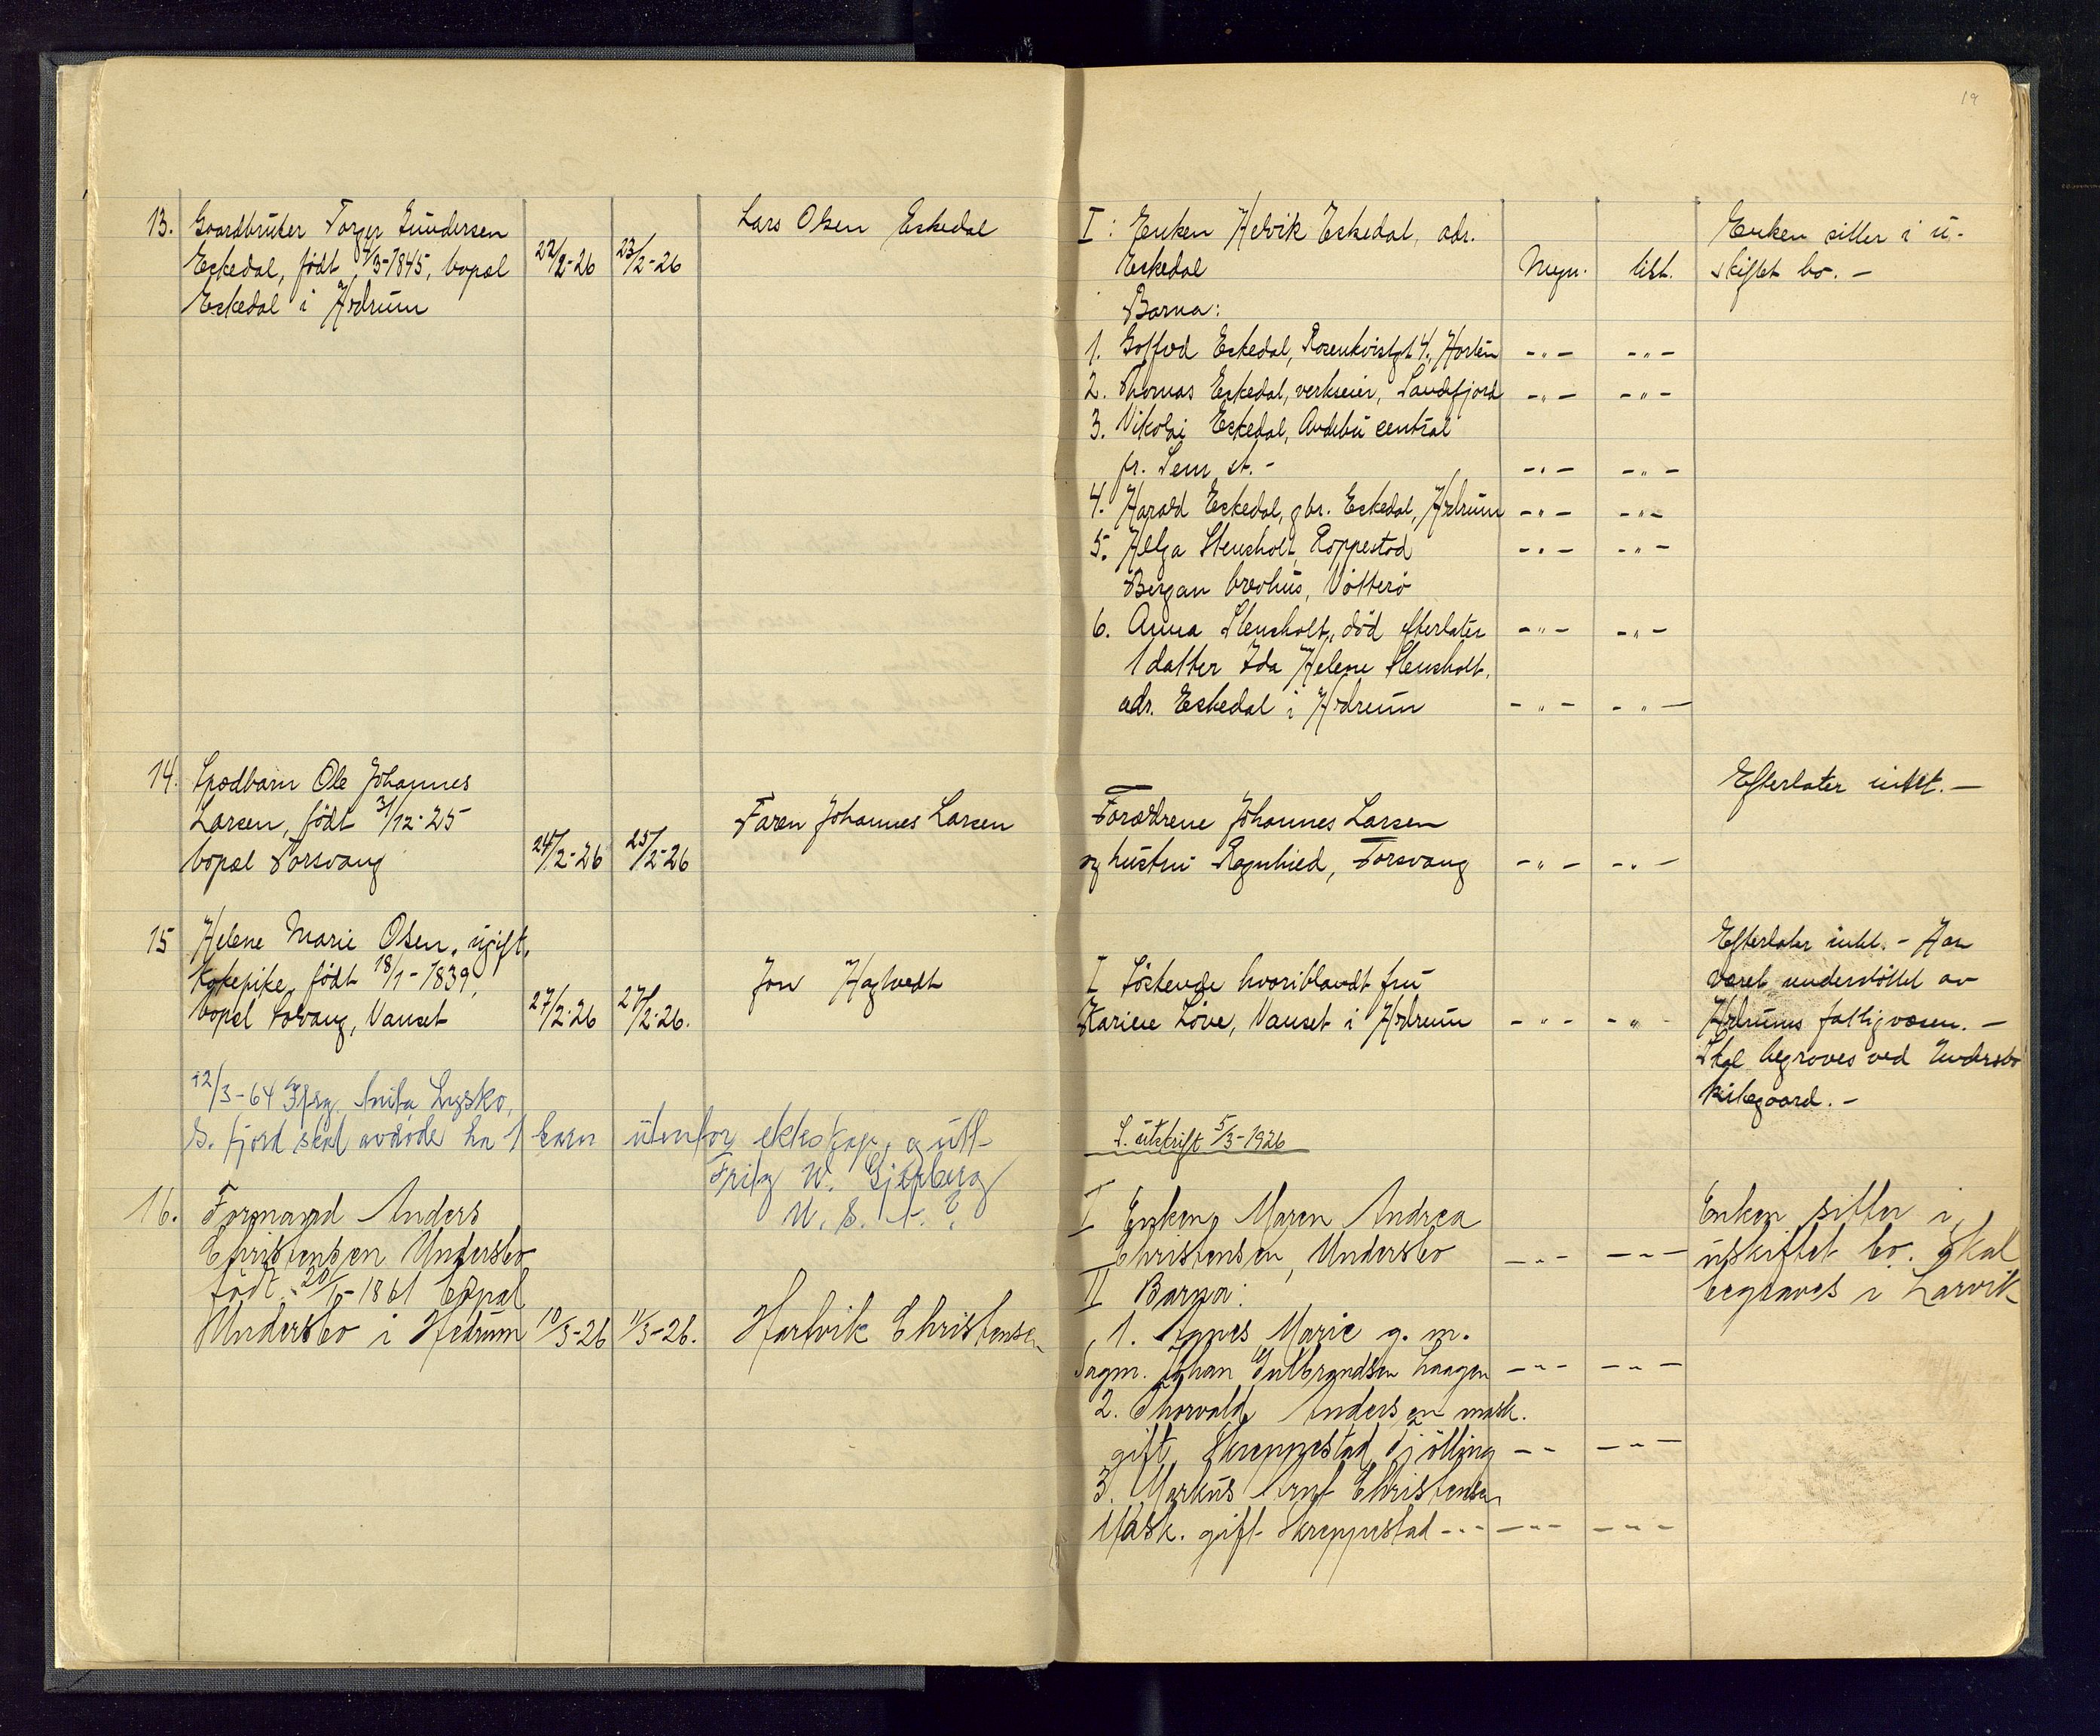 19
13. Gaardbruker Torger Gundersen
Eskedal, født 7/3-1845, bopæl
Eskedal i Hedrum
22/2-26 23/2-26
Lars Olsen Eskedal
I: Enken Helvik Eskedal, adr.
Eskedal Myn. tilst.
Barna:
1. Eskedal, Rosenkvistgt 4, Horten -"- -"-
2. Thomas Eskedal, verkseier, Sandefjord -"- -"-
3. Nikolai Eskedal, Andebu central
pr. Sem st. - -"- -"-
4. Harald Eskedal, gbr. Eskedal, Hedrum -"- -"-
5. Helga Stensholt, Roppestad
-"- -"-
Bergan brevhus,
6. Anna Stensholt, død efterlater -"- -"-
1 datter Ida Helene Stensholt,
adr. Eskedal i Hedrum -"- -"-
Enken sitter i u-
skiftet bo. -
14. Spædbarn Ole Johannes
Larsen, født 31/12-25
bopæl Torsvang
24/2-26 25/2-26
Faren Johannes Larsen
Forældrene Johannes Larsen
og hustru Ragnhild, Torsvang -"- -"-
Efterlater intet. -
15 Helene Marie Olsen, ugift,
kokepike, født 18/1-1839,
bopæl Solvang, Vanset
27/2-26 27/2-26.
Jon Haghvedt
I Söskende hvoriblandt fru
Karine Löve, Vanset i Hedrum -"- -"-
Efterlater intet. - Har
været understöttet av
Hedrums fattigvæsen. -
Skal begraves ved Undersbo
kirkegaard. -
12/3-64 Anita Lysko,
S. fjord skal avdöde ha 1 barn utenfor ekteskap, g utl
Fritz W. Gjerberg
U. S. A. ?
S. utskrift 5/3-1926
16. Formand Anders
Christensen Undersbo
født 20/ -1861 bopæl
Undersbo i Hedrum 10/3-26 11/3-26.
Hartvik Christensen
I Enken Maren Andrea
Christensen, Undersbo -"- -"-
II Barna:
1. Agnes Marie g. m.
Sagm. Johan Gulbrandsen Haagen -"- -"-
2. Thorvald Andersen mask.
gift, Skreppestad Tjölling -"- -"-
3. Markus Arnt Christensen
Mask. gift Skreppestad -"- -"- -"-
Enken sitter i
uskiftet bo. Skal
begraves i Larvik